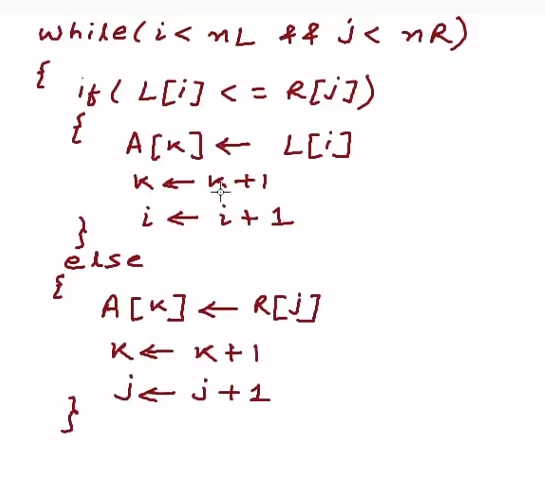 while(i < nL && j < nR)
{
if( L[i] <= R[j])
{
A[k] ← L[i]
k ← k+1
i ← i+1
}
else
{
A[k] ← R[j]
k ← k+1
j ← j+1
}